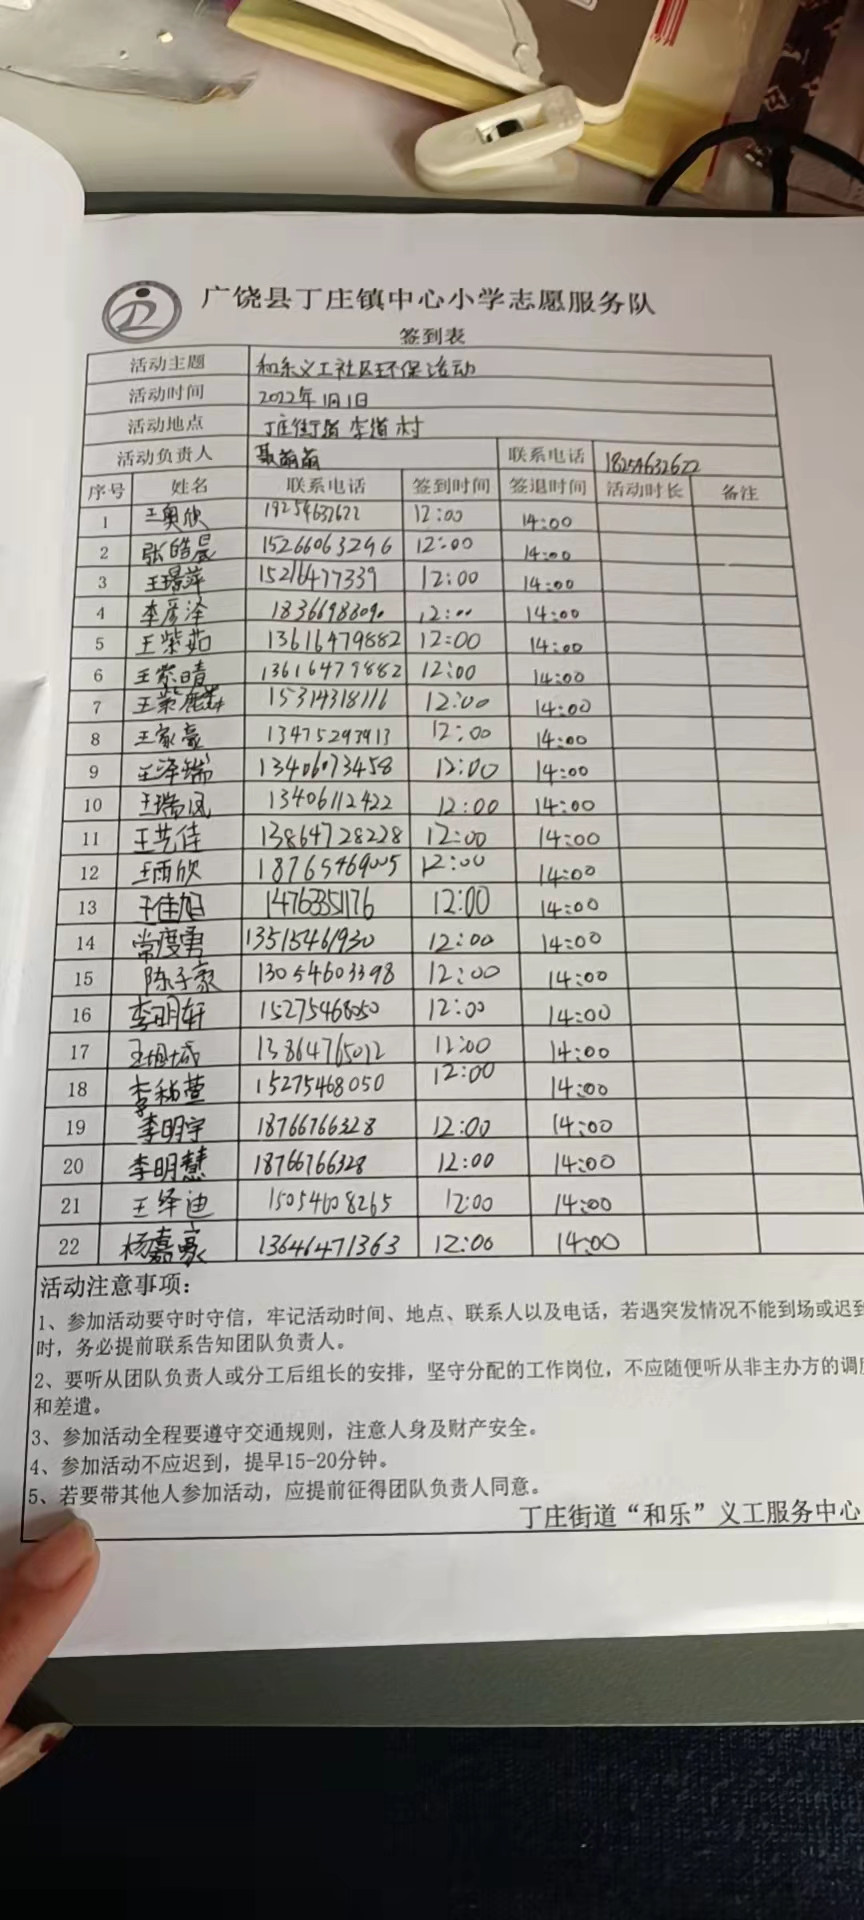 广饶县丁庄镇中心小学志愿服务队
签到表
活动主题 和乐义工社区环保活动
活动时间 2022年1月1日
活动地点 丁庄街道李道村
活动负责人 聂萌萌 联系电话 18254632622
序号 姓名 联系电话 签到时间 签退时间 活动时长 备注
1 王奥欣 18254632622 12:00 14:00
2 张皓晨 15266063296 12:00 14:00
3 王璟萍 15216477339 12:00 14:00
4 李彦泽 12:00 14:00
5 王紫茹 13616479882 12:00 14:00
6 王紫晴 13616479882 12:00 14:00
7 王紫麒 15314318116 12:00 14:00
8 王家豪 13475293913 12:00 14:00
9 王泽瑞 13406073458 12:00 14:00
10 王瑞凤 13406112422 12:00 14:00
11 王艺佳 13864728228 12:00 14:00
12 王雨欣 18765469005 12:00 14:00
13 王佳旭 14763351176 12:00 14:00
14 常度勇 13515461930 12:00 14:00
15 陈子豪 13054603398 12:00 14:00
16 李明轩 15275468050 12:00 14:00
17 13864765012 12:00 14:00
18 李梓萱 15275468050 12:00 14:00
19 李明宇 18766766328 12:00 14:00
20 李明慧 18766766328 12:00 14:00
21 王绎迪 15054608265 12:00 14:00
22 杨嘉豪 13646471363 12:00 14:00
活动注意事项：
1、参加活动要守时守信，牢记活动时间、地点、联系人以及电话，若遇突发情况不能到场或迟到
时，务必提前联系告知团队负责人。
2、要听从团队负责人或分工后组长的安排，坚守分配的工作岗位，不应随便听从非主办方的调度
和差遣。
3、参加活动全程要遵守交通规则，注意人身及财产安全。
4、参加活动不应迟到，提早15-20分钟。
5、若要带其他人参加活动，应提前征得团队负责人同意。
丁庄街道“和乐”义工服务中心